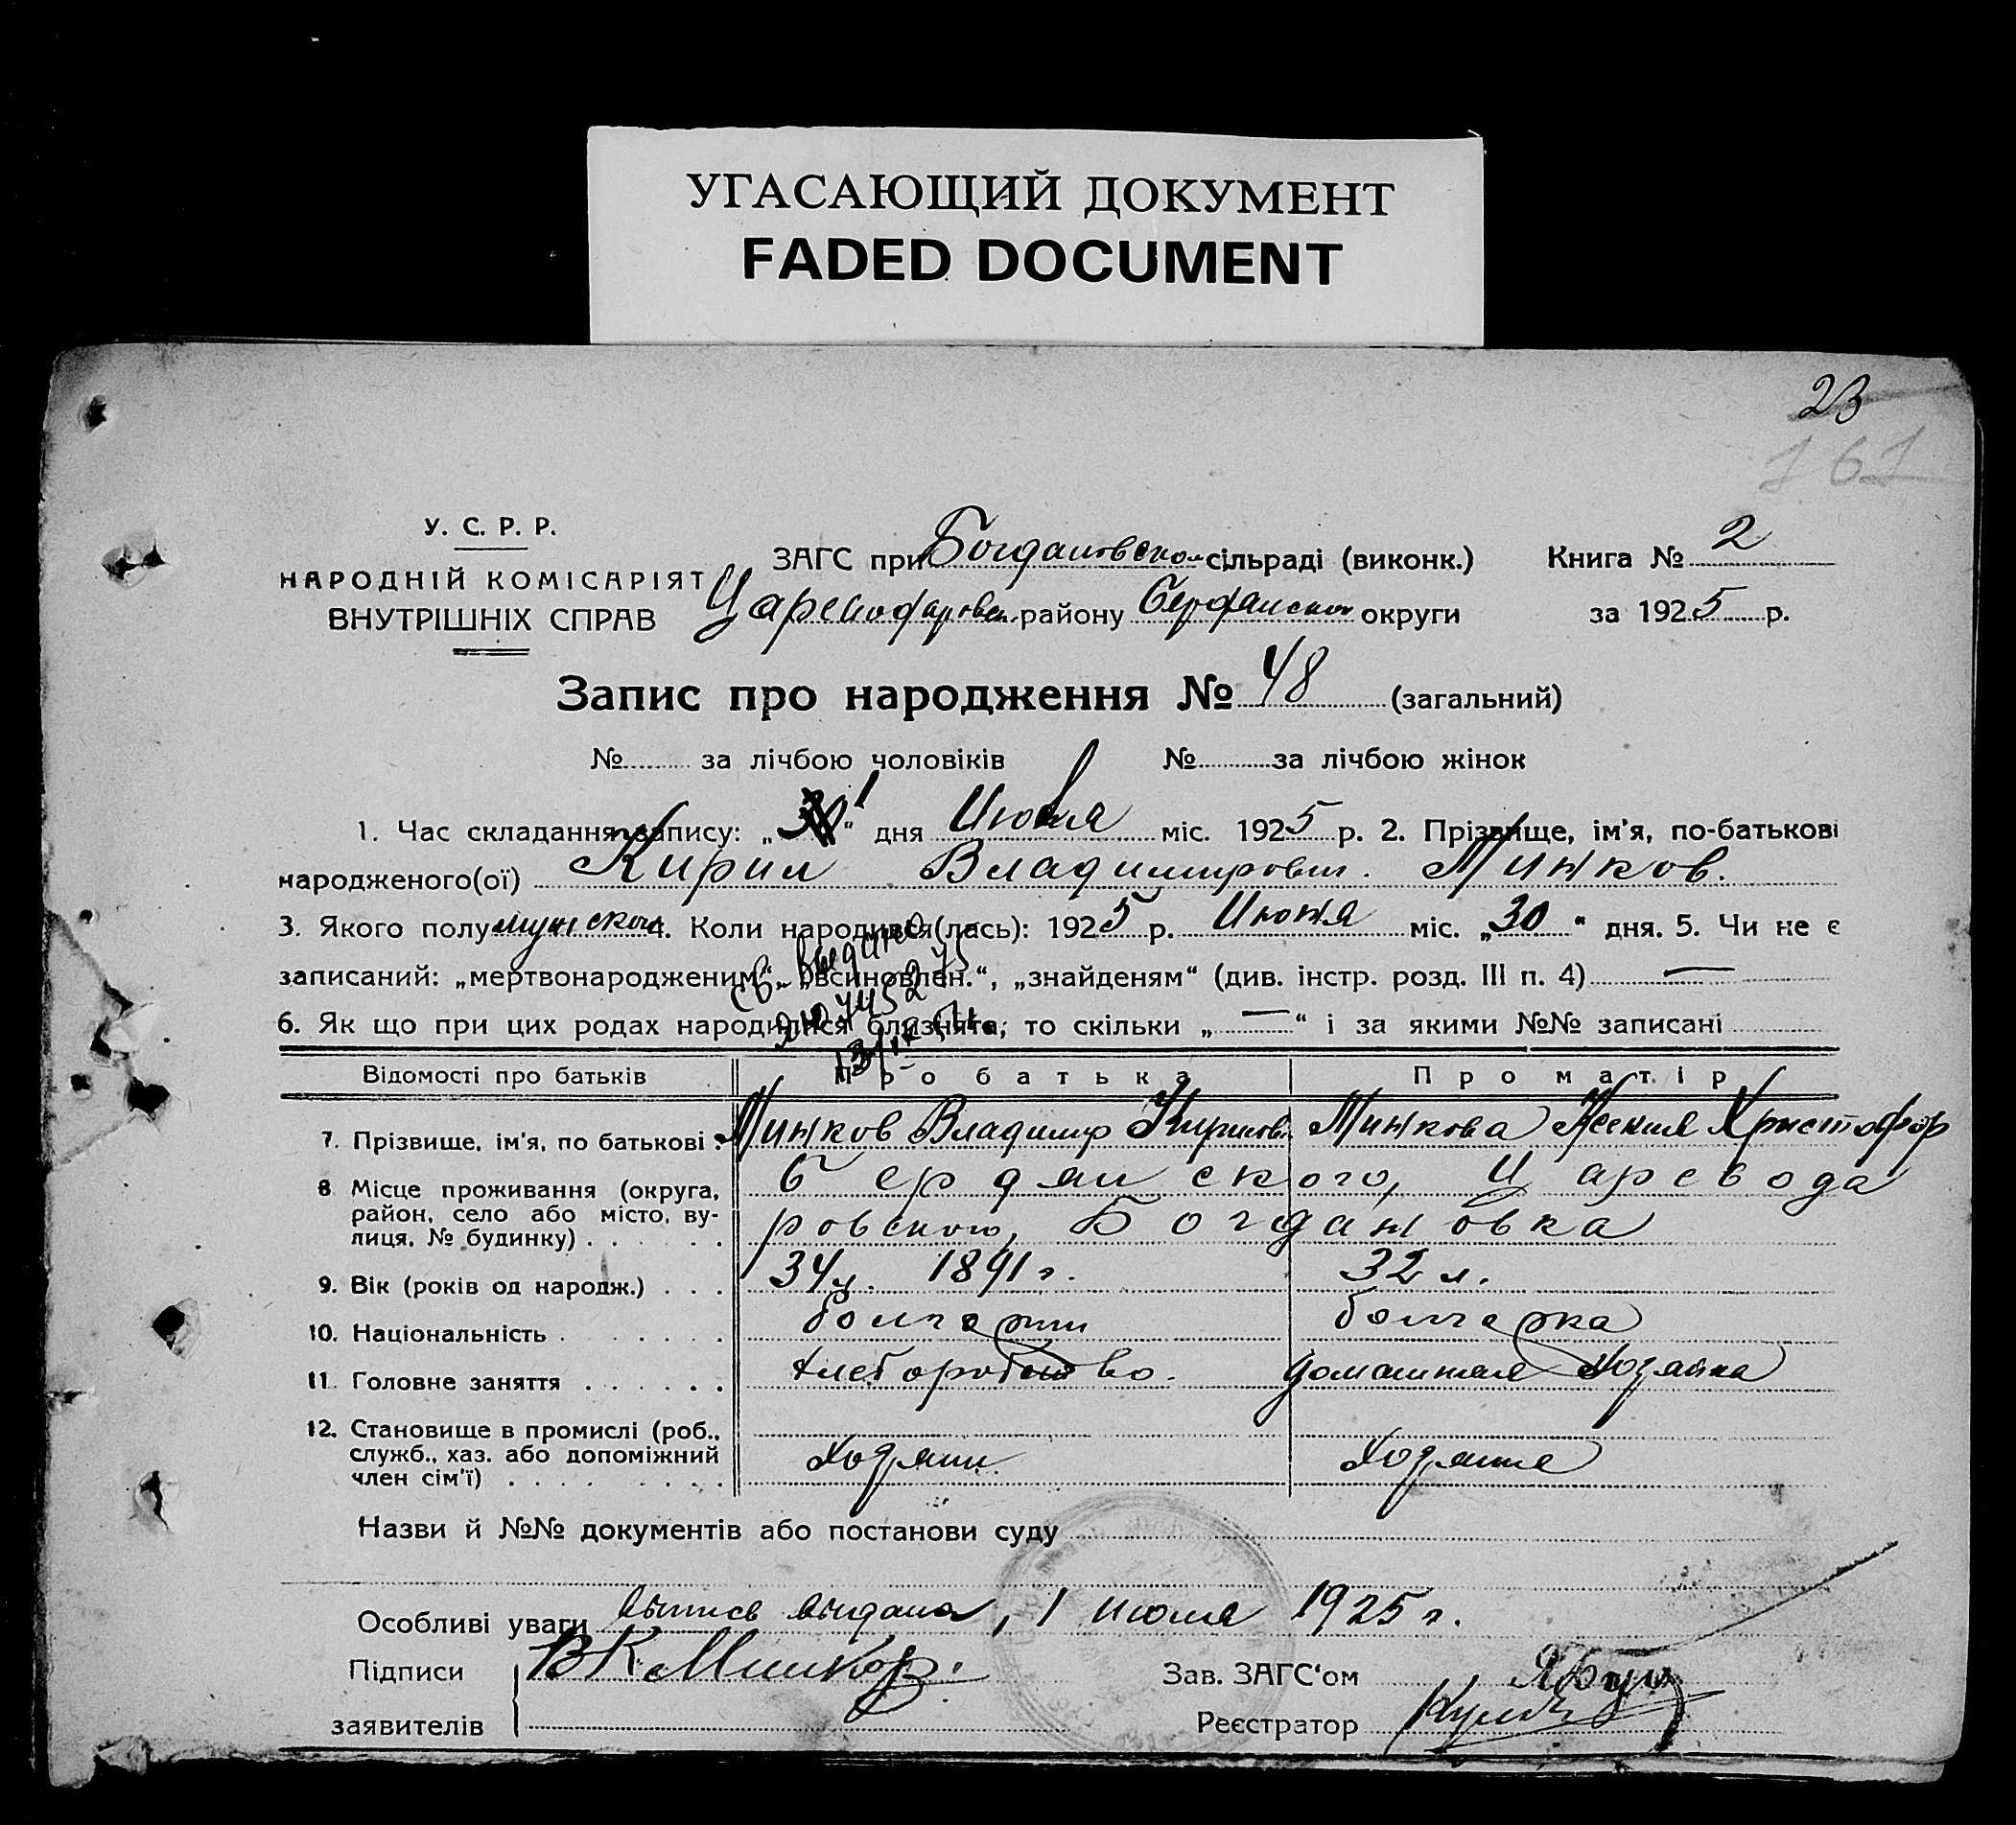 УГАСАЮЩИЙ ДОКУМЕНТ
FADED DOCUMENT
23
161
У. С. Р. Р.
НАРОДНІЙ КОМІСАРІЯТ
ВНУТРІШНІХ СПРАВ
ЗАГС при Богдановском сільраді (виконк.) Книга № 2
району Бердянском округи за 1925 р.
Запис про народження № 48 (загальний)
№ за лічбою чоловіків № за лічбою жінок
1. Час складання запису: „1“ дня Июля міс. 1925 р. 2. Прізвище, ім'я, по-батькові
народженого(ої) Кирил Владимирович. Минков.
3. Якого полу мужского 4. Коли народився(лась): 1925 р. Июня міс. „30“ дня. 5. Чи не є
записаний: „мертвонародженим“, „всиновлен.“, „знайденям“ (див. інстр. розд. III п. 4) —
6. Як що при цих родах народилися близнята, то скільки „—“ і за якими №№ записані
Св. выдано
Відомості про батьків Про батька Про матір
7. Прізвище, ім'я, по батькові . Минков Владимир Кирилов. Минкова Ксения Христофор
8 Місце проживання (округа, Бердянского, Царевода
район, село або місто, ву- ровского, Богдановка
лиця, № будинку) . . . . . .
9. Вік (років од народж.) . . . 34 л. 1891 г. 32 л.
10. Національність . . . . . . . болгарин болгарка
11. Головне заняття . . . . . . хлеборобство. домашняя хозяйка
12. Становище в промислі (роб.,
служб., хаз. або допоміжний хозяин хозяика
член сім'ї) . . . . . . . .
Назви й №№ документів або постанови суду
Особливі уваги выпись выдана, 1 июля 1925 г.
Підписи В К Минков. Зав. ЗАГС'ом
заявителів Реєстратор